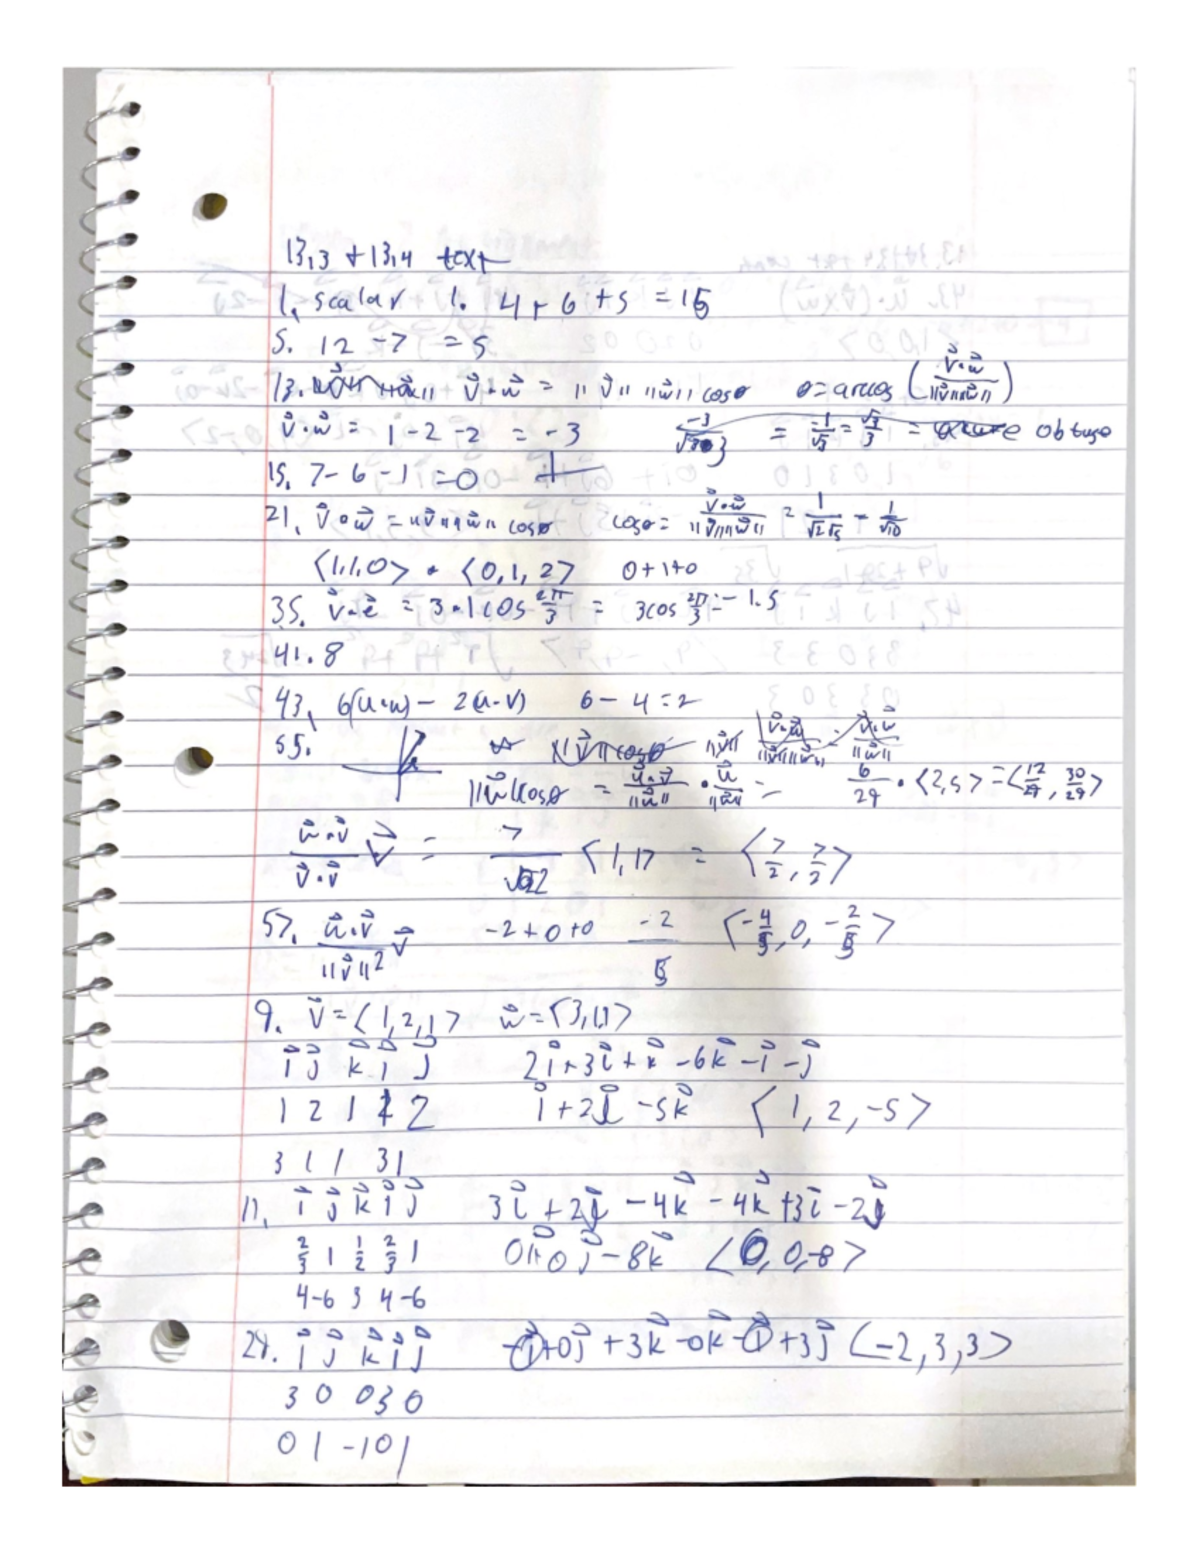 13.3 + 13.4 text
1. scalar 1. 4 + 6 + 5 = 15
5. 12 - 7 = 5
13. v⃗ · w⃗ = ||v⃗|| ||w⃗|| cosθ θ = arccos (v⃗·w⃗ / ||v⃗|| ||w⃗||)
v⃗·w⃗ = 1 - 2 - 2 = -3 = 1/√3 = √3/3 = obtuse
15. 7 - 6 - 1 = 0 ⊥
21. v⃗·w⃗ = ||v⃗|| ||w⃗|| cosθ cosθ = v⃗·w⃗ / ||v⃗|| ||w⃗|| = 1/√2√5 = 1/√10
<1,1,0> · <0,1,2> 0+1+0
35. v⃗·e⃗ = 3·1cos 2π/3 = 3cos 2π/3 = -1.5
41. 8
43. 6(u·w) - 2(u·v) 6 - 4 = 2
55. ||v⃗|| v⃗·w⃗ / ||v⃗|| ||w⃗|| v⃗·w⃗ / ||w⃗||
||u⃗||cosθ = u⃗·v⃗ / ||u⃗|| · u⃗ / ||u⃗|| = 6/29 · <2,5> = <12/29, 30/29>
u⃗·v⃗ / v⃗·v⃗ v⃗ = 7/2 <1,1> = <7/2, 7/2>
57. u⃗·v⃗ / ||v⃗||² v⃗ -2+0+0 -2/5 <-4/5, 0, -2/5>
9. v⃗ = <1,2,1> w⃗ = <3,1,1>
i⃗ j⃗ k⃗ i⃗ j⃗ 2i⃗+3j⃗+k⃗-6k⃗-i⃗-j⃗
1 2 1 1 2 i⃗+2j⃗-5k⃗ <1,2,-5>
3 1 1 3 1
11. i⃗ j⃗ k⃗ i⃗ j⃗ 3i⃗+2j⃗-4k⃗-4k⃗+3i⃗-2j⃗
2/3 1 1/2 2/3 1 0i+0j⃗-8k⃗ <0,0,-8>
4 -6 3 4 -6
i⃗ j⃗ k⃗ i⃗ j⃗ +0j⃗+3k⃗-0k⃗ +3j⃗ <-2,3,3>
3 0 0 3 0
0 1 -1 0 1